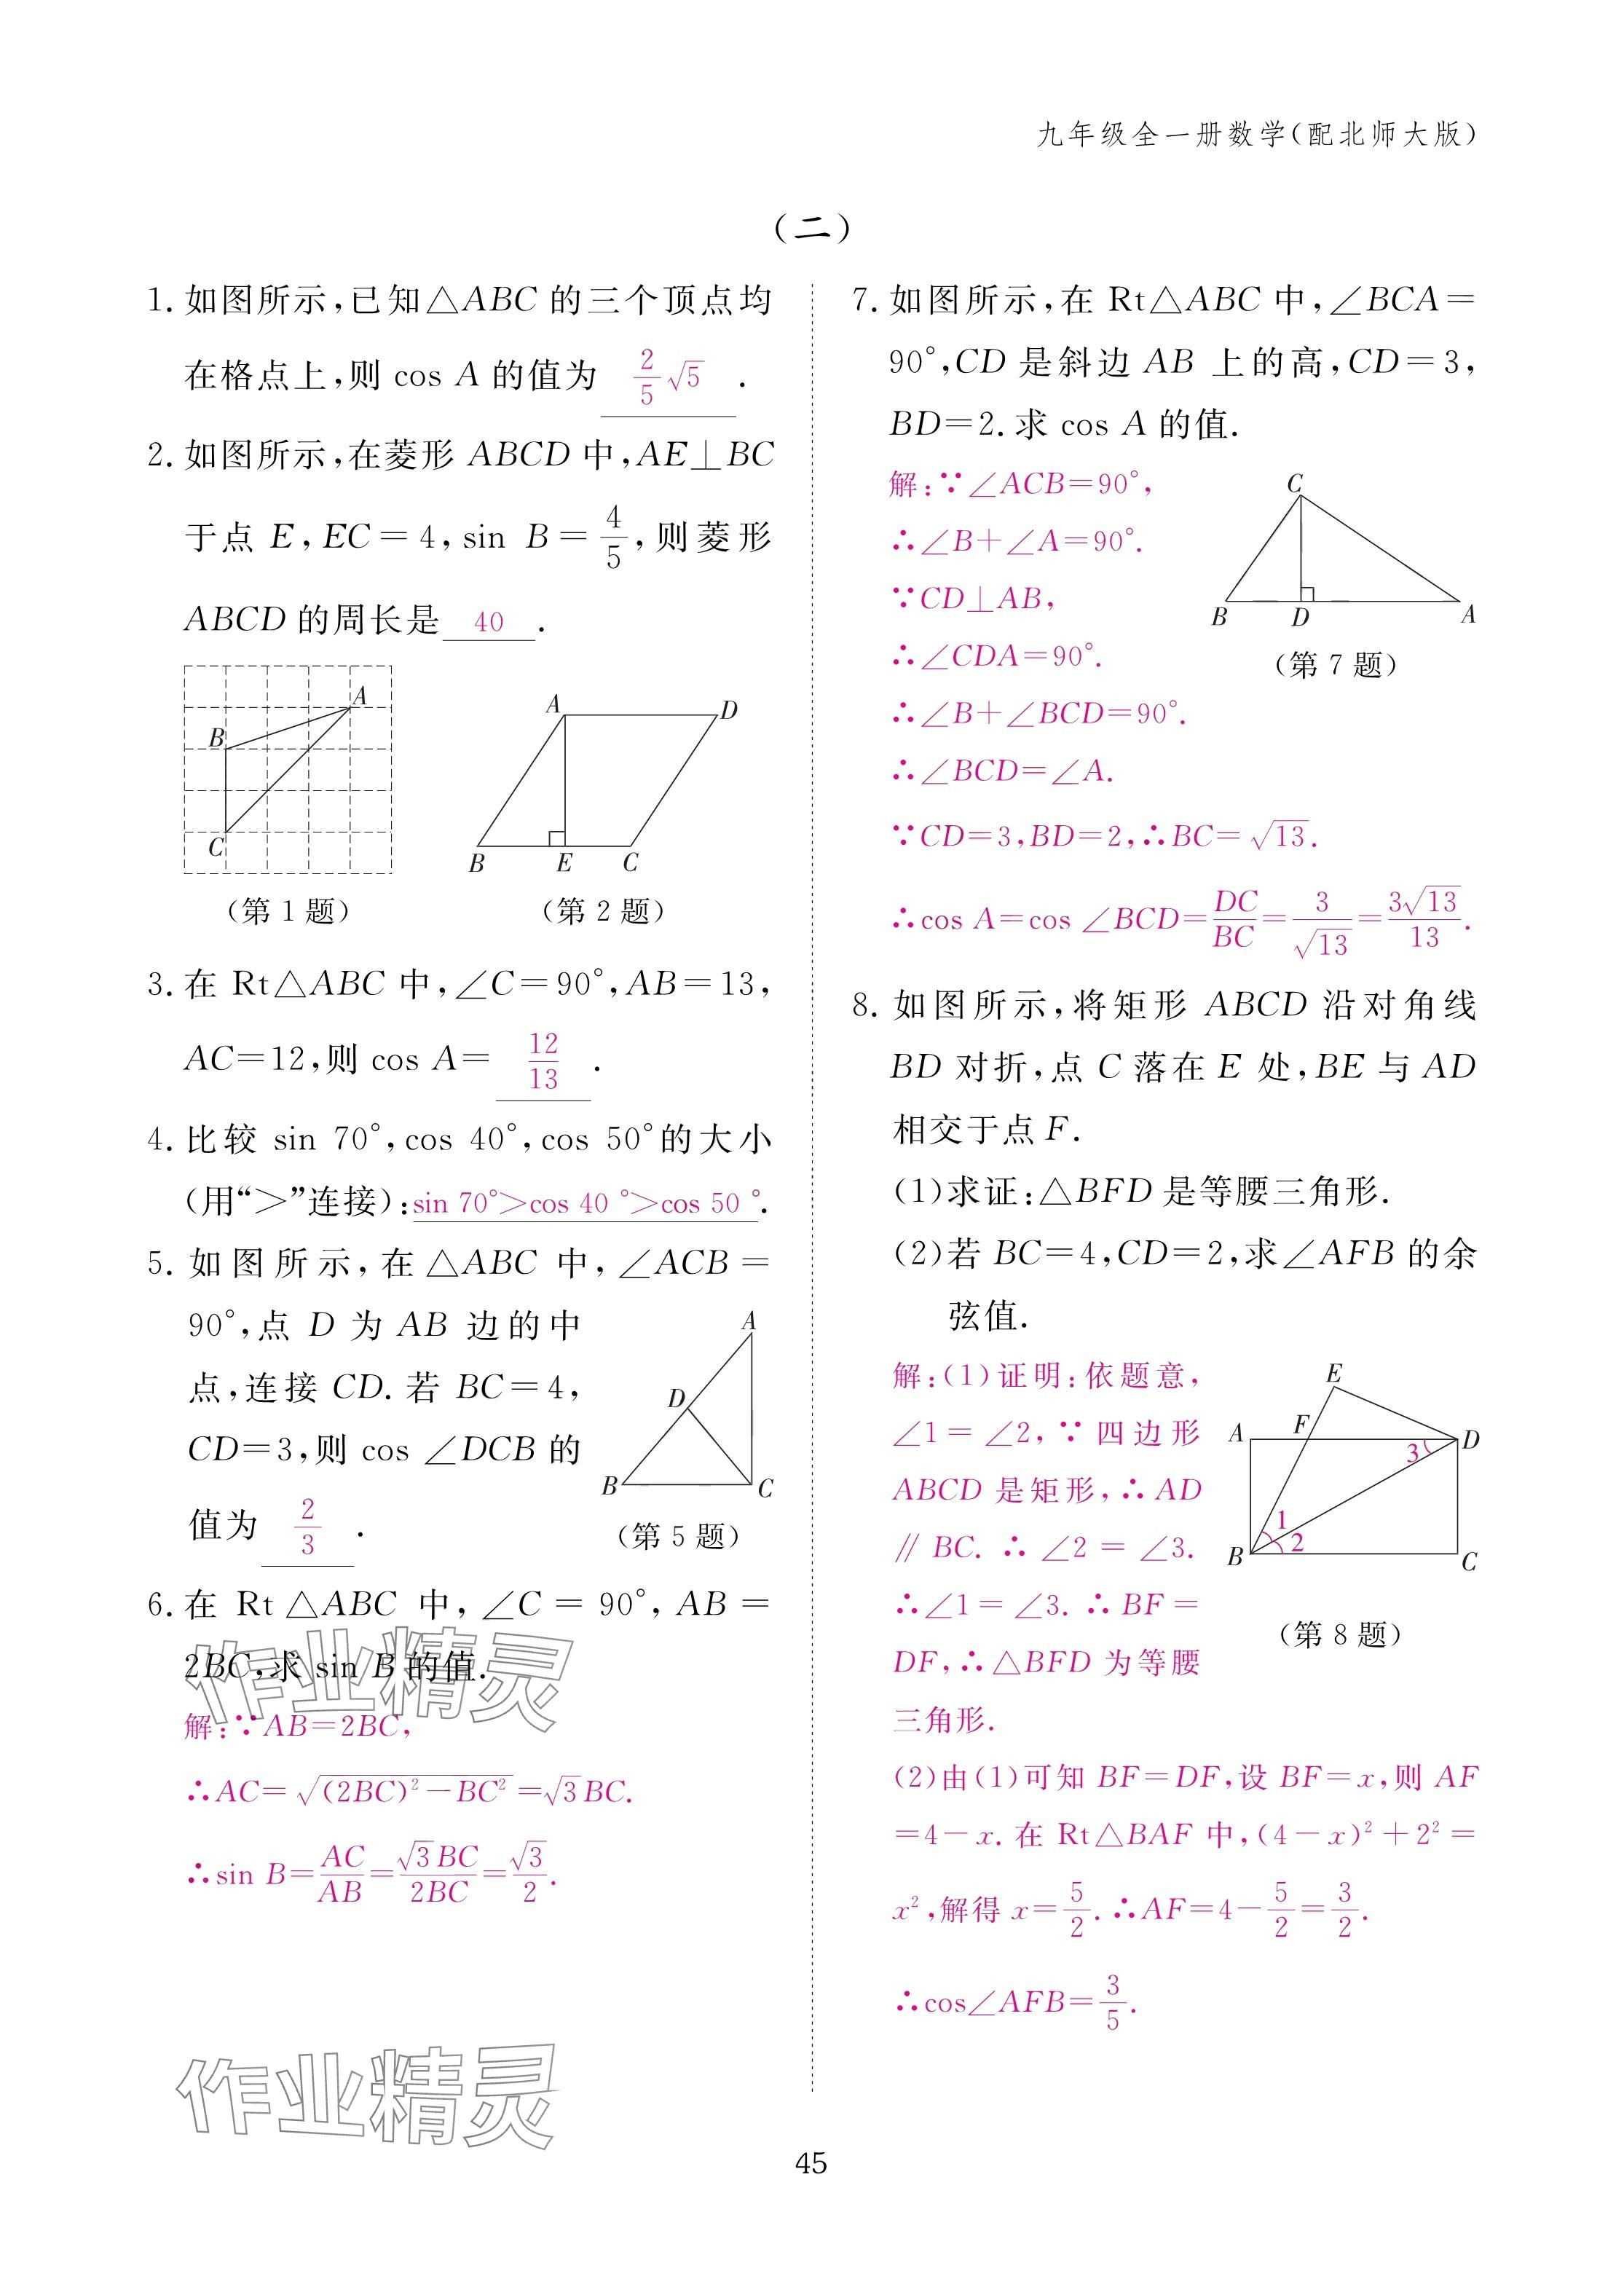 九年级全一册数学(配北师大版)
(二)
1. 如图所示,已知△ABC 的三个顶点均
在格点上,则 cos A 的值为 2/5 √5 .
2. 如图所示,在菱形 ABCD 中,AE⊥BC
于点 E,EC=4,sin B=4/5,则菱形
ABCD 的周长是 40 .
A
B
C
(第 1 题)
A
D
B
E
C
(第 2 题)
3. 在 Rt△ABC 中,∠C=90°,AB=13,
AC=12,则 cos A= 12/13 .
4. 比较 sin 70°,cos 40°,cos 50°的大小
(用“>”连接):sin 70°>cos 40 °>cos 50 °.
5. 如图所示,在△ABC 中,∠ACB=
90°,点 D 为 AB 边的中
点,连接 CD. 若 BC=4,
CD=3,则 cos ∠DCB 的
值为 2/3 .
A
D
B
C
(第 5 题)
6. 在 Rt △ABC 中,∠C = 90°, AB =
2BC,求 sin B 的值.
解:∵AB=2BC,
∴AC=√((2BC)²-BC²)=√3BC.
∴sin B=AC/AB=√3BC/2BC=√3/2.
7. 如图所示,在 Rt△ABC 中,∠BCA=
90°,CD 是斜边 AB 上的高,CD=3,
BD=2. 求 cos A 的值.
解:∵∠ACB=90°,
∴∠B+∠A=90°.
∵CD⊥AB,
∴∠CDA=90°.
∴∠B+∠BCD=90°.
∴∠BCD=∠A.
∵CD=3,BD=2,∴BC=√13.
∴cos A=cos ∠BCD=DC/BC=3/√13=3√13/13.
C
B
D
A
(第 7 题)
8. 如图所示,将矩形 ABCD 沿对角线
BD 对折,点 C 落在 E 处,BE 与 AD
相交于点 F.
(1)求证:△BFD 是等腰三角形.
(2)若 BC=4,CD=2,求∠AFB 的余
弦值.
解:(1)证明:依题意,
∠1=∠2,∵四边形
ABCD 是矩形,∴AD
∥BC. ∴∠2=∠3.
∴∠1=∠3. ∴BF=
DF,∴△BFD 为等腰
三角形.
E
A
F
D
3
1
2
B
C
(第 8 题)
(2)由(1)可知 BF=DF,设 BF=x,则 AF
=4-x. 在 Rt△BAF 中,(4-x)²+2²=
x²,解得 x=5/2. ∴AF=4-5/2=3/2.
∴cos∠AFB=3/5.
作业精灵
作业精灵
45